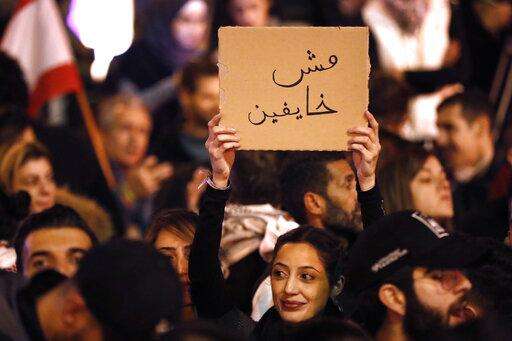 مش
خايفين